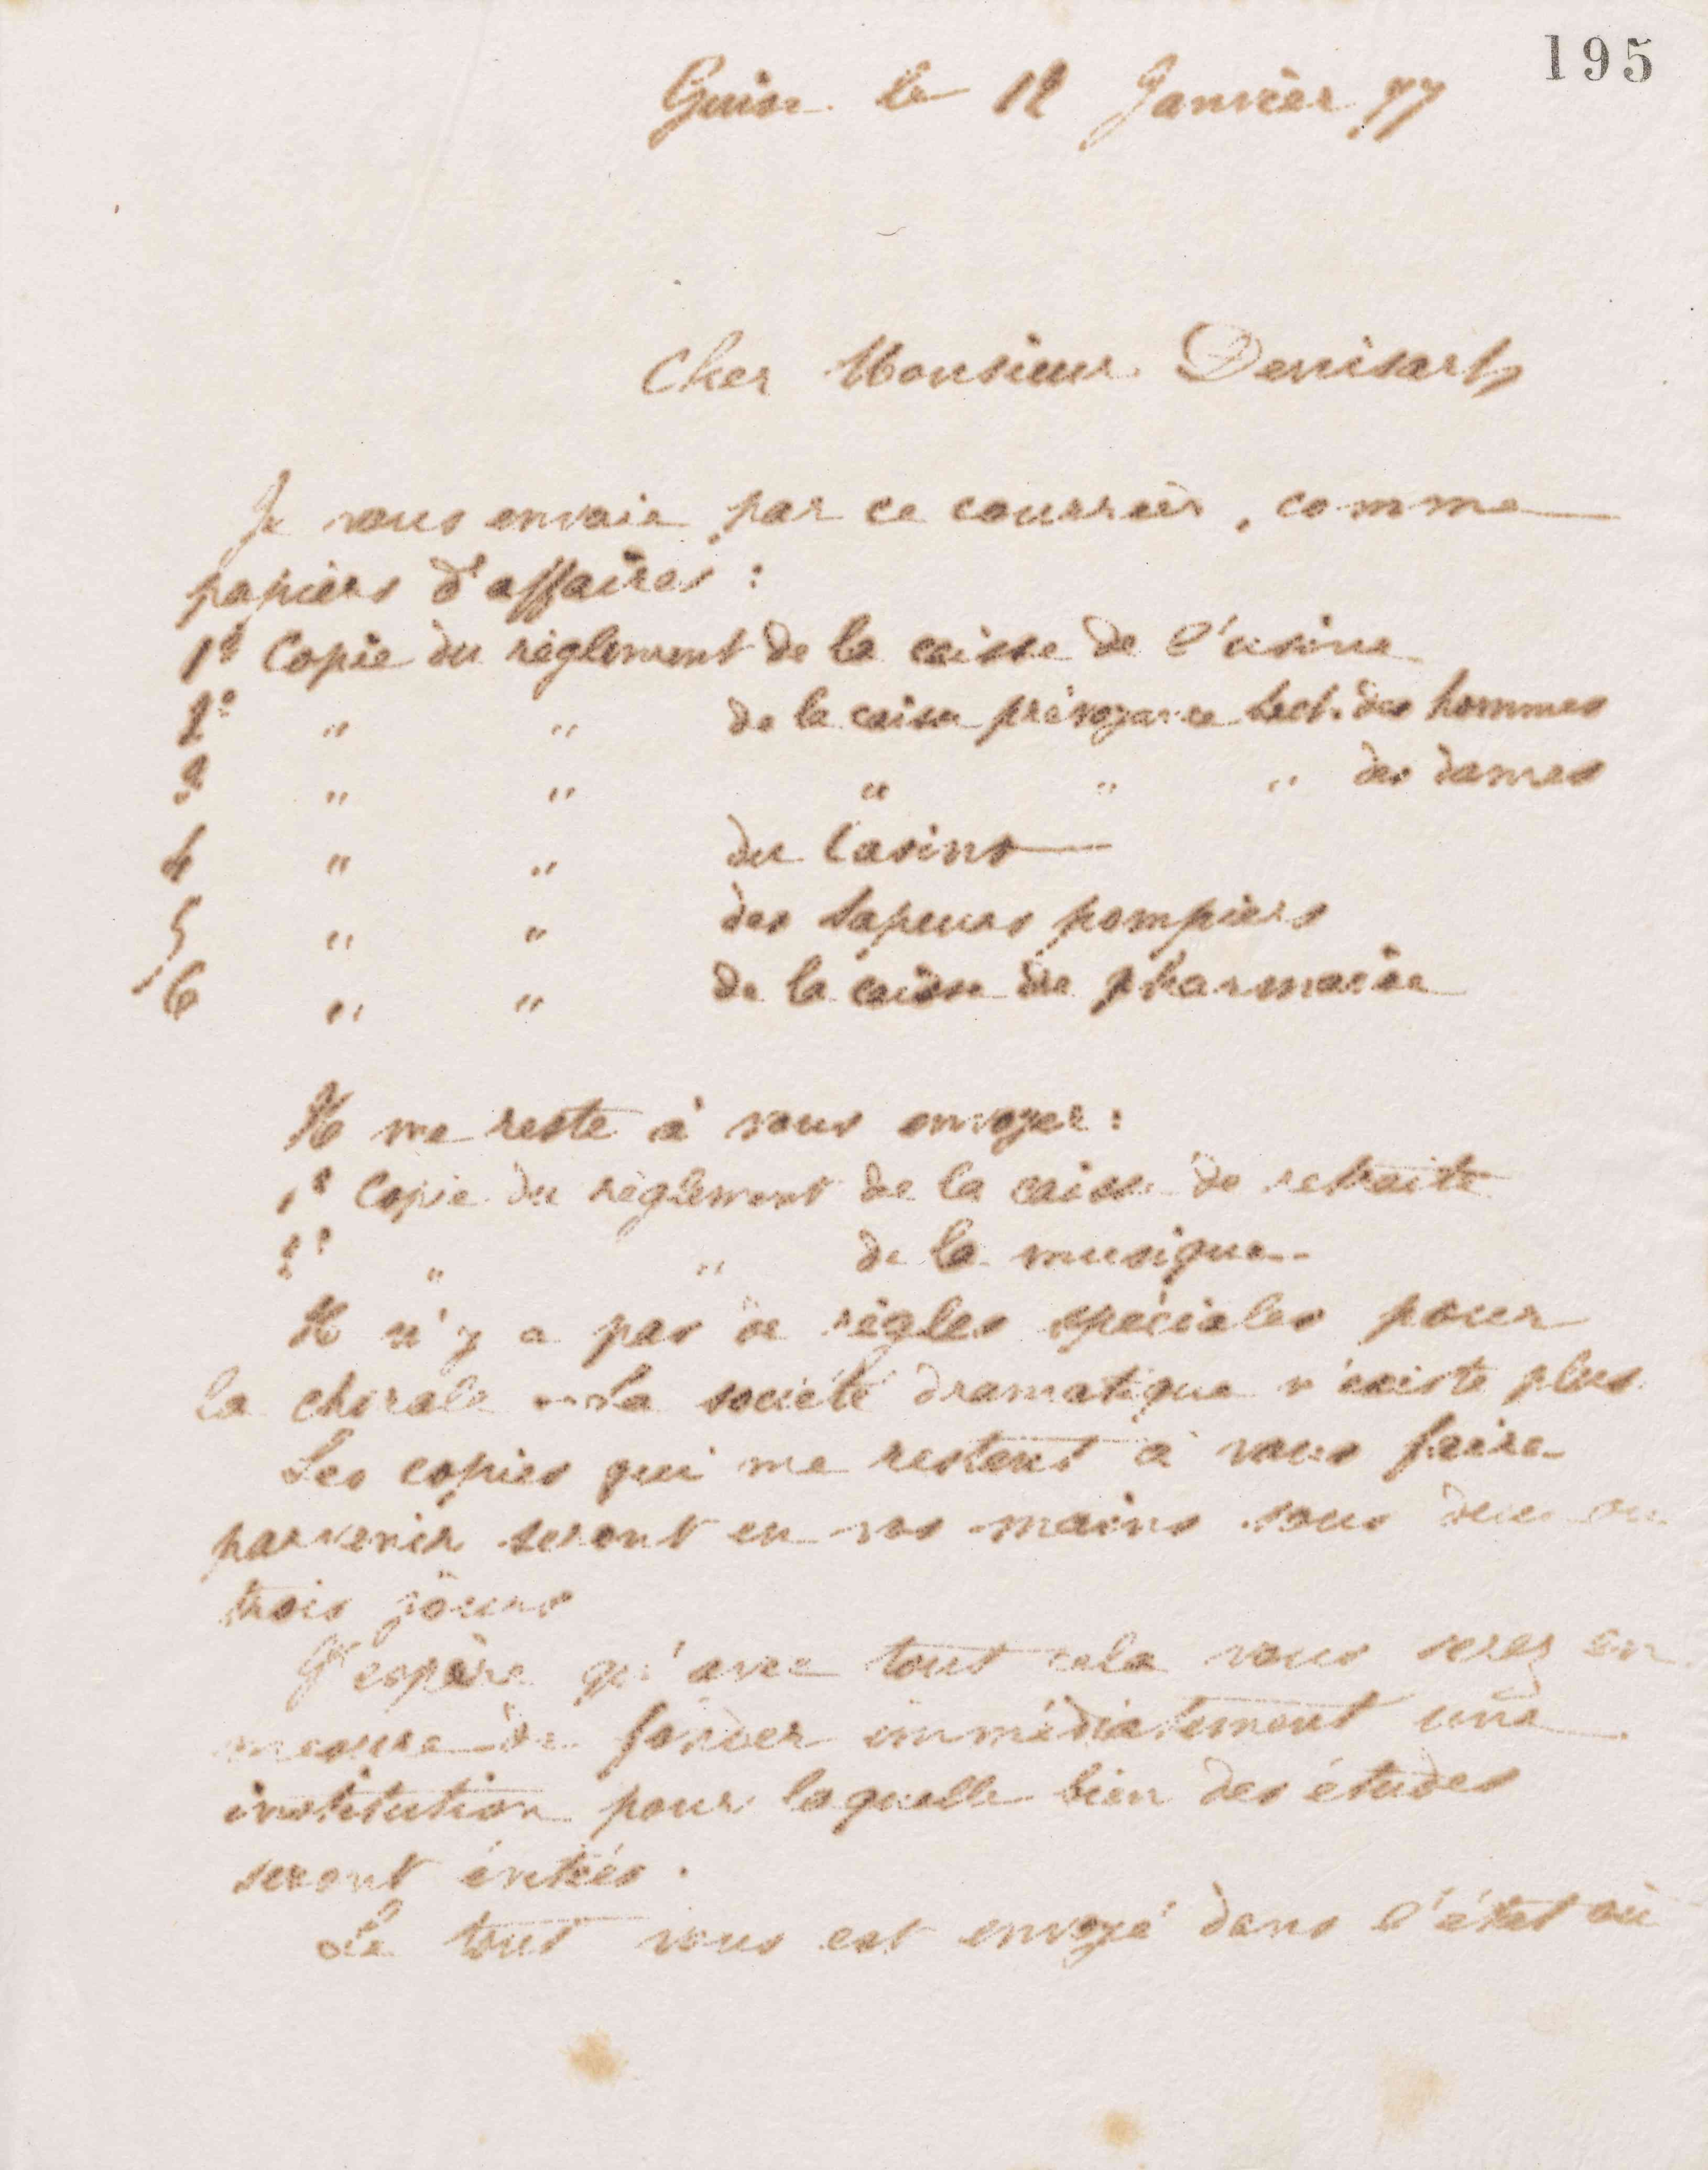 195
Guise le 12 Janvier 77
Cher Monsieur Denisart,
Je vous envoie par ce courrier, comme
papiers d'affaires :
1º Copie du règlement de la caisse de l'usine
2º " " de la caisse prévoyance Sect. des hommes
3 " " " " " des dames
4 " " du Casino
5 " " des Sapeurs pompiers
6 " " de la caisse de pharmacie
Il me reste à vous envoyer :
1º Copie du règlement de la caisse de retraite
2º " " de la musique.
Il n'y a pas de règles spéciales pour
la chorale La société dramatique n'existe plus
Les copies qui me restent à vous faire
parvenir seront en vos mains sous deux ou
trois jours
J'espère qu'avec tout cela vous serez en
mesure de fonder immédiatement une
institution pour laquelle bien des études
seront évitées.
Le tout vous est envoyé dans l'état où